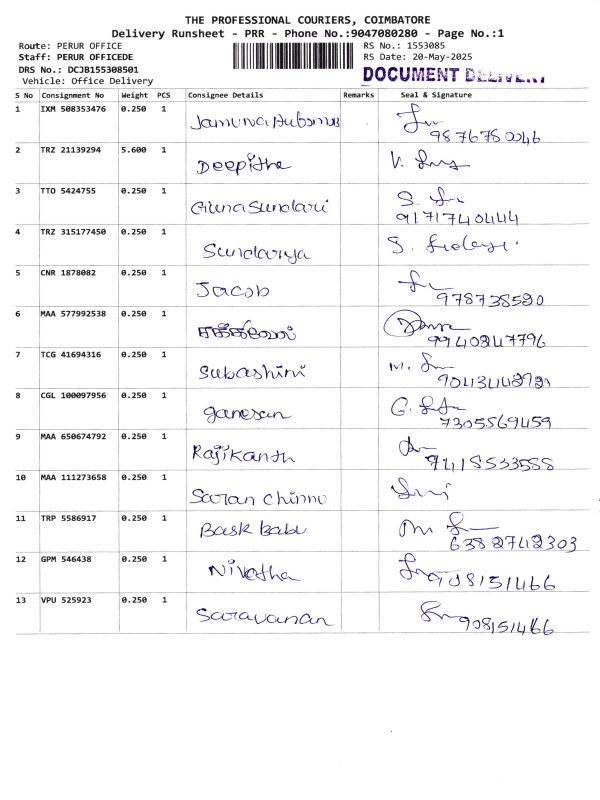 THE PROFESSIONAL COURIERS, COIMBATORE
Delivery Runsheet - PRR - Phone No.:9047080280 - Page No.:1
Route: PERUR OFFICE
RS No.: 1553085
Staff: PERUR OFFICEDE
RS Date: 20-May-2025
DRS No.: DCJB155308501
DOCUMENT DELIVERY
Vehicle: Office Delivery
S No Consignment No Weight PCS Consignee Details Remarks Seal & Signature
1 IXM 508353476 0.250 1 Jamuna
2 TRZ 21139294 5.600 1 Deepitha V.
3 TTO 5424755 0.250 1 Guna Sundari S.
9171740444
4 TRZ 315177450 0.250 1 Sundarya S.
5 CNR 1878082 0.250 1 Jacob
978738590
6 MAA 577992538 0.250 1
9940247796
7 TCG 41694316 0.250 1 Subashini M.
8 CGL 100097956 0.250 1 ganesan G.
7305569459
9 MAA 650674792 0.250 1 Rajikanth
9418533588
10 MAA 111273658 0.250 1 Saran Chinnu
11 TRP 5586917 0.250 1 Bask Babu M.
6382742303
12 GPM 546438 0.250 1 Nivetha
908151466
13 VPU 525923 0.250 1 Saravanan
908151466